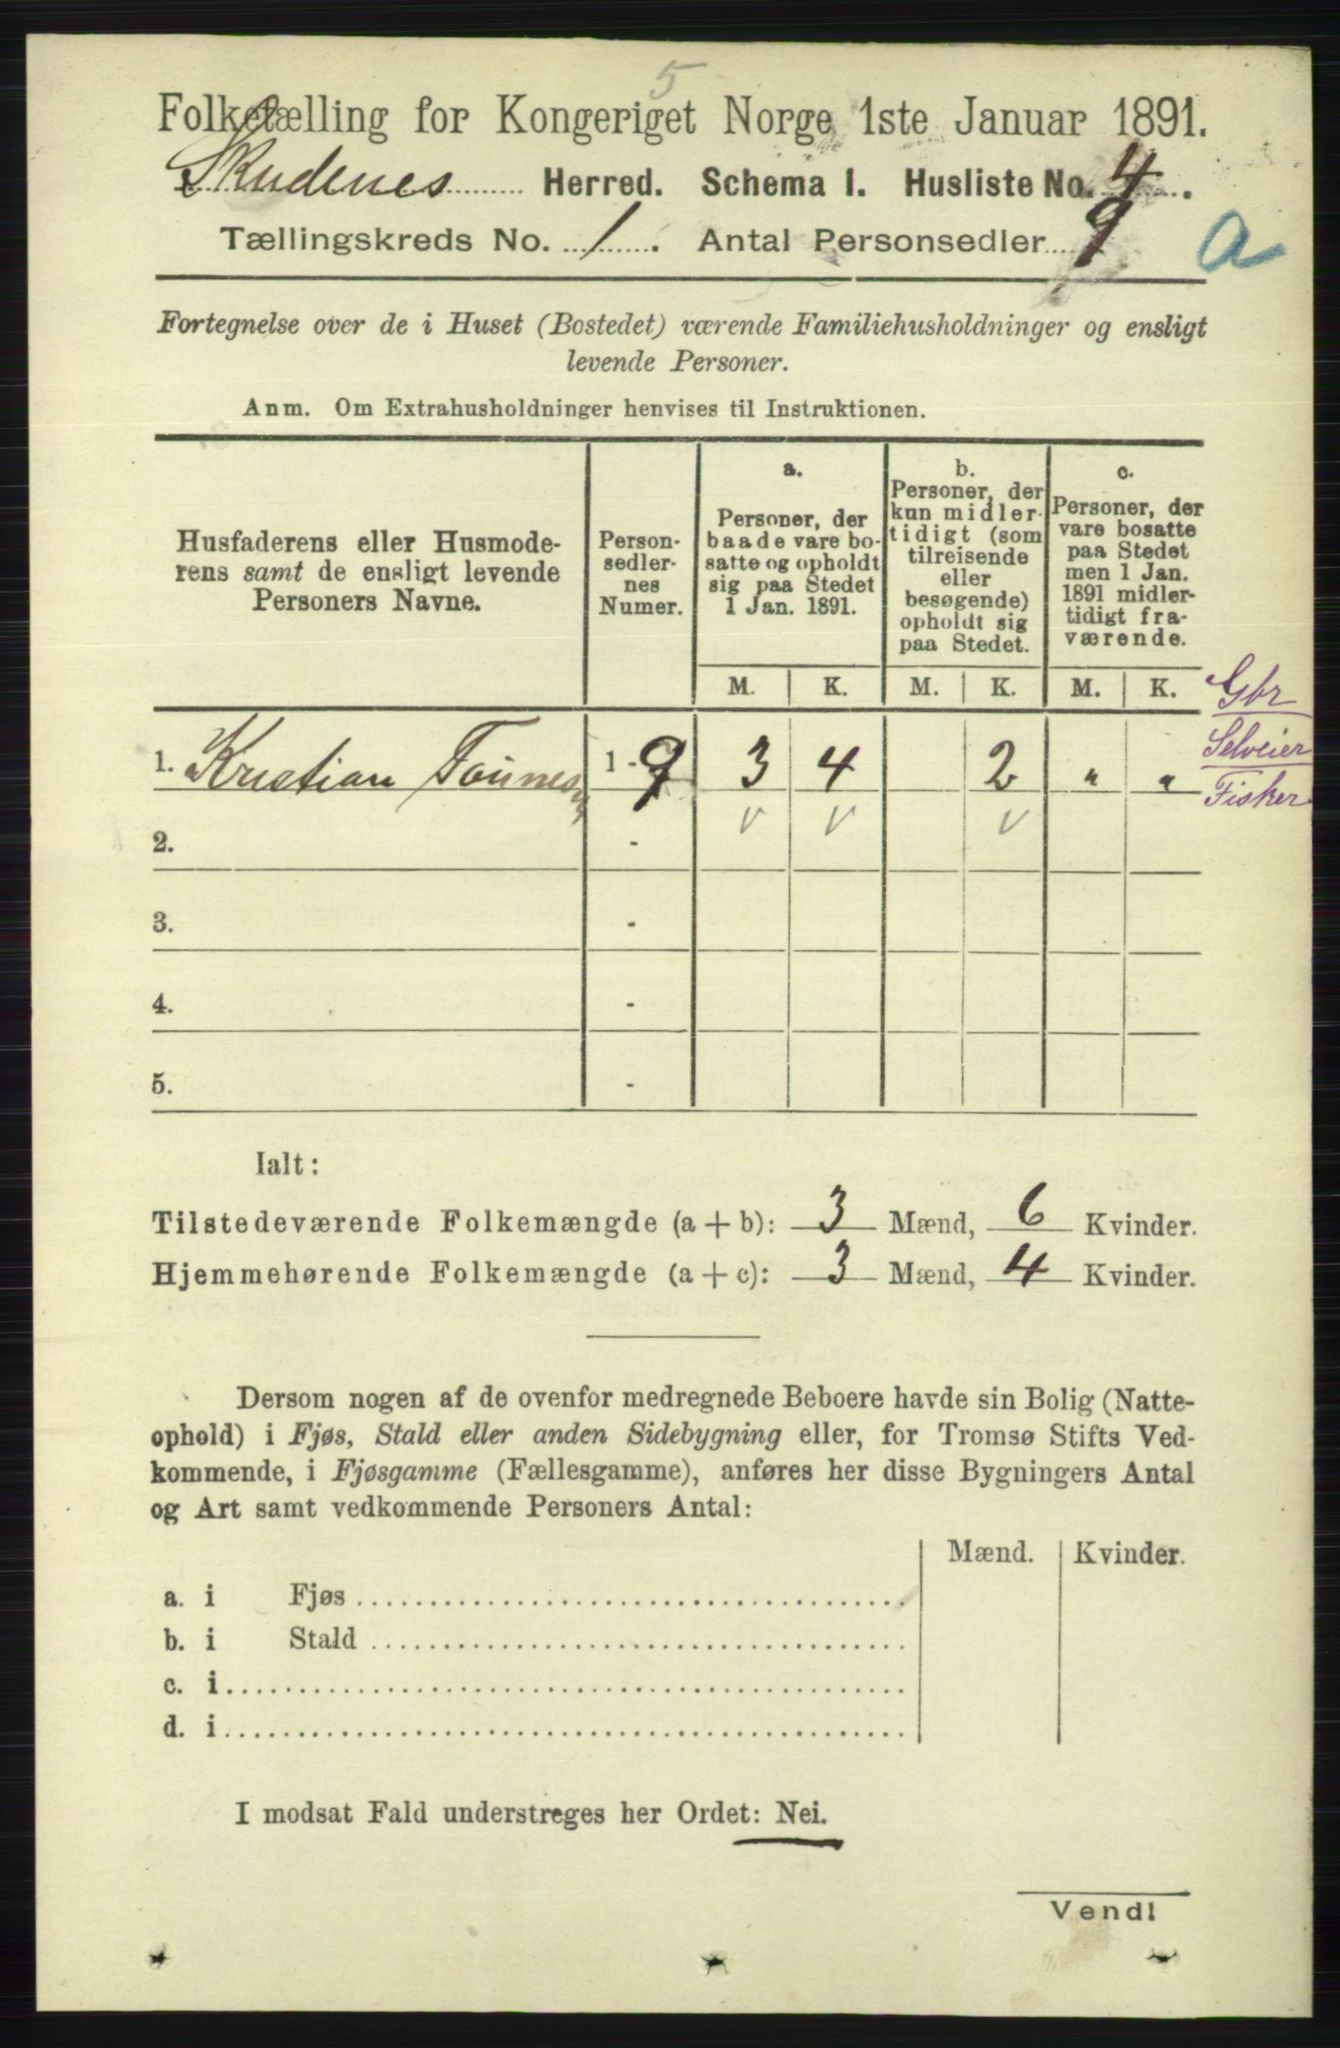 5
Folketælling for Kongeriget Norge 1ste Januar 1891.
Skudenes Herred. Schema I. Husliste No. 4.
Tællingskreds No. 1. Antal Personsedler 9
a
Fortegnelse over de i Huset (Bostedet) værende Familiehusholdninger og ensligt
levende Personer.
Anm. Om Extrahusholdninger henvises til Instruktionen.
Husfaderens eller Husmode-
rens samt de ensligt levende
Personers Navne.
Person-
sedler-
nes
Numer.
a.
Personer, der
baade vare bo-
satte og opholdt
sig paa Stedet
1 Jan. 1891.
b.
Personer, der
kun midler-
tidigt (som
tilreisende
eller
besøgende)
opholdt sig
paa Stedet.
c.
Personer, der
vare bosatte
paa Stedet
men 1 Jan.
1891 midler-
tidigt fra-
værende.
M. K. M. K. M. K.
Gbr
Selveier
Fisker
1. Kristian 1 - 9 3 4 2 " "
v v v
2. -
3. -
4. -
5. -
Ialt:
Tilstedeværende Folkemængde (a + b): 3 Mænd, 6 Kvinder.
Hjemmehørende Folkemængde (a + c): 3 Mænd, 4 Kvinder.
Dersom nogen af de ovenfor medregnede Beboere havde sin Bolig (Natte-
ophold) i Fjøs, Stald eller anden Sidebygning eller, for Tromsø Stifts Ved-
kommende, i Fjøsgamme (Fællesgamme), anføres her disse Bygningers Antal
og Art samt vedkommende Personers Antal:
Mænd. Kvinder.
a. i Fjøs
b. i Stald
c. i
d. i
I modsat Fald understreges her Ordet: Nei.
Vend!